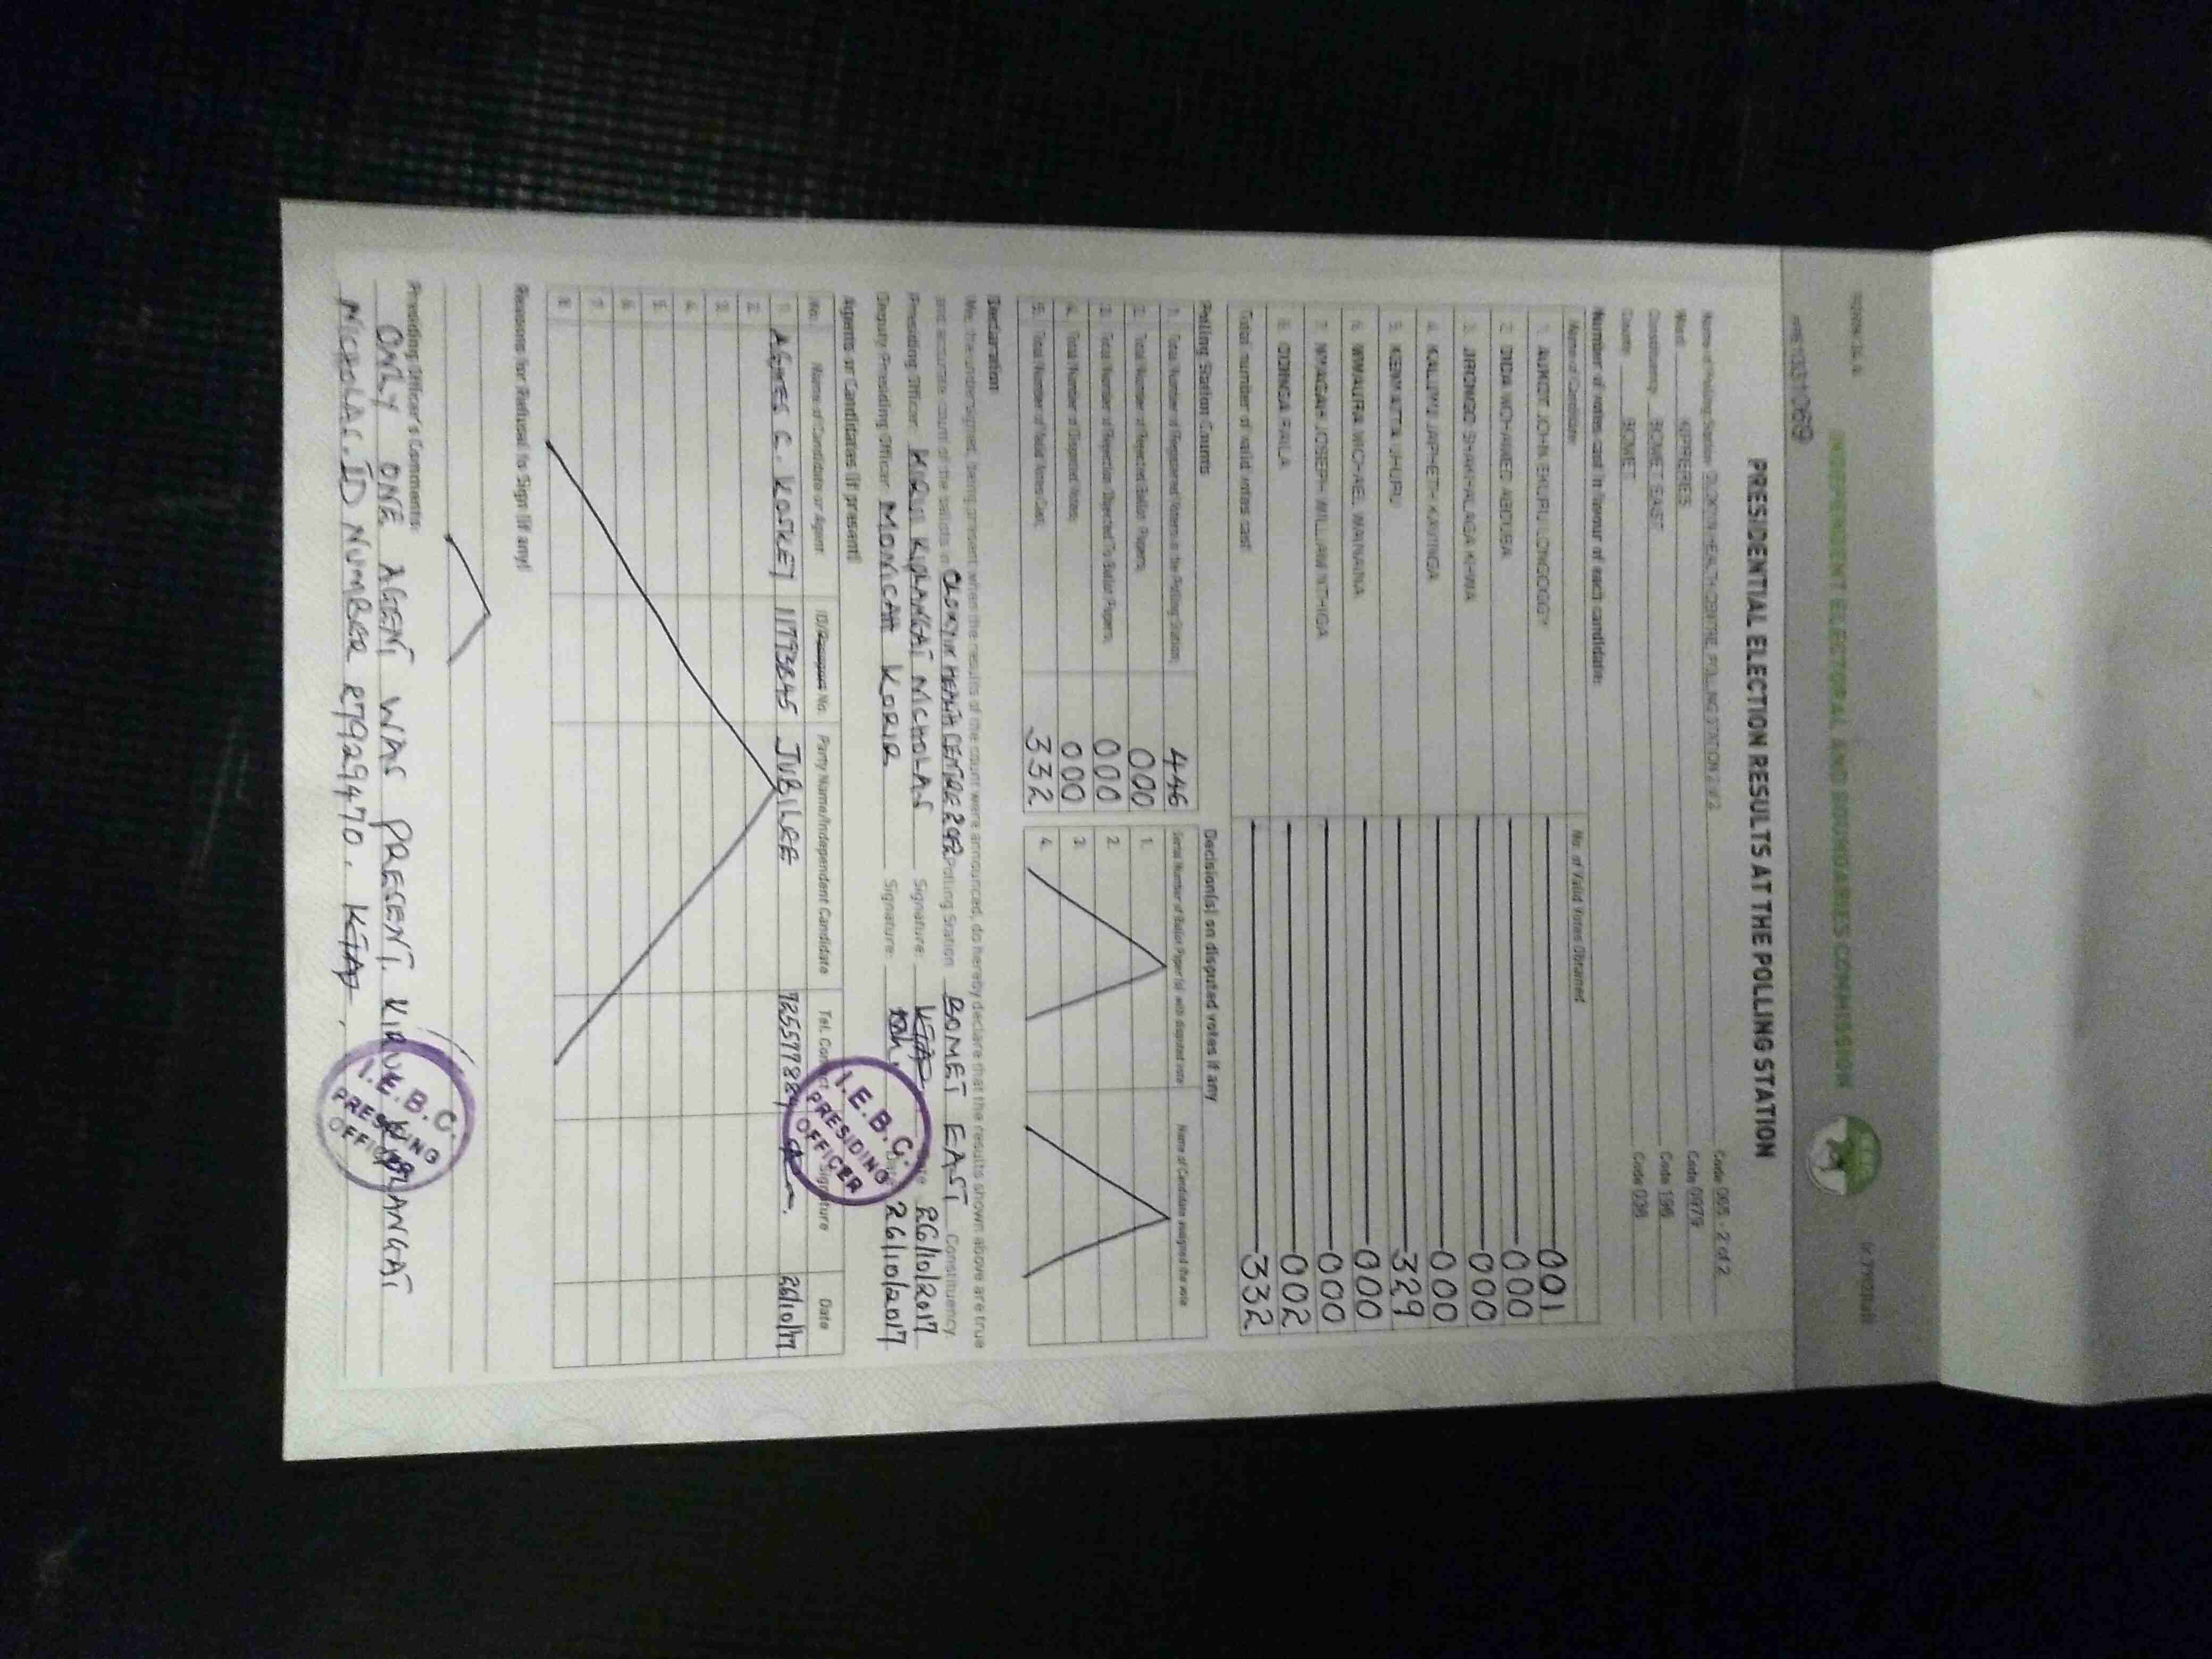 FORM 34 A
INDEPENDENT ELECTORAL AND BOUNDARIES COMMISSION
PRESIDENTIAL ELECTION RESULTS AT THE POLLING STATION
Name of Polling Station HEALTH CENTRE POLLING STATION 2 of 2 Code 005 - 2 of 2
Ward Code 0979
Constituency BOMET EAST Code 196
County BOMET Code 036
Number of votes cast in favour of each candidate:
Name of Candidate No. of Valid Votes Obtained
1. AUKOT JOHN EKURU LONGOGGY 001
2. DIDA MOHAMED ABDUBA 000
3. JIRONGO SHAKHALAGA KHWA 000
4. KALUYU JAPHETH KAVINGA 000
5. KENYATTA UHURU 329
6. MWAURA MICHAEL WAINAINA 000
7. NYAGAH JOSEPH WILLIAM NTHIGA 000
8. ODINGA RAILA 002
Total number of valid votes cast 332
Polling Station Counts
1. Total Number of Registered Voters in the Polling Station; 446
2. Total Number of Rejected Ballot Papers; 000
3. Total Number of Rejection Objected To Ballot Papers; 000
4. Total Number of Disputed Votes; 000
5. Total Number of Valid Votes Cast; 332
Decision(s) on disputed votes if any
Serial Number of Ballot Paper (s) with disputed vote Name of Candidate assigned the vote
1.
2.
3.
4.
Declaration
We, the undersigned, being present when the results of the count were announced, do hereby declare that the results shown above are true
and accurate count of the ballots in HEALTH CENTRE 2 OF 2 Polling Station BOMET EAST Constituency.
Presiding Officer KIRUI KIPLANGAT NICHOLAS Signature: Date 26/10/2017
Deputy Presiding Officer MONICAH KORIR Signature: 26/10/2017
I.E.B.C. PRESIDING OFFICER
Agents or Candidates (if present)
No. Name of Candidate or Agent ID/Passport No. Party Name/Independent Candidate Tel. Contact Signature Date
1. AGNES C. KOSKEY 11793845 JUBILEE 26/10/17
2.
3.
4.
5.
6.
7.
8.
Reasons for Refusal to Sign (if any)
Presiding Officer's Comments:
ONLY ONE AGENT WAS PRESENT. KIRUI KIPLANGAT
NICHOLAS. ID NUMBER 27929470.
I.E.B.C. PRESIDING OFFICER